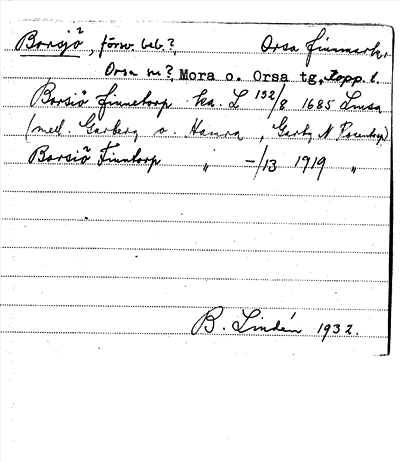 Borsjö, försv. beb.?, Orsa finnmark.
Orsa sn? Mora o. Orsa tg, Kopp. l.
Borsiö finnetorp ka. L 132/8 1685 Lmsa
(med. Garberg o. Hamra, Garb, N Rosentorp)
Borsiö Finntorp " -/13 1919 "
B. Lindén 1932.